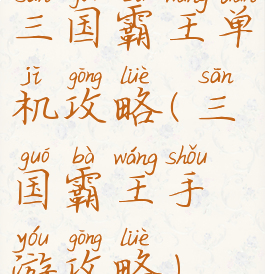 sān guó bà wáng dān
三国霸王单
jī gōng lüè sān
机攻略(三
guó bà wáng shǒu
国霸王手
yóu gōng lüè
游攻略)